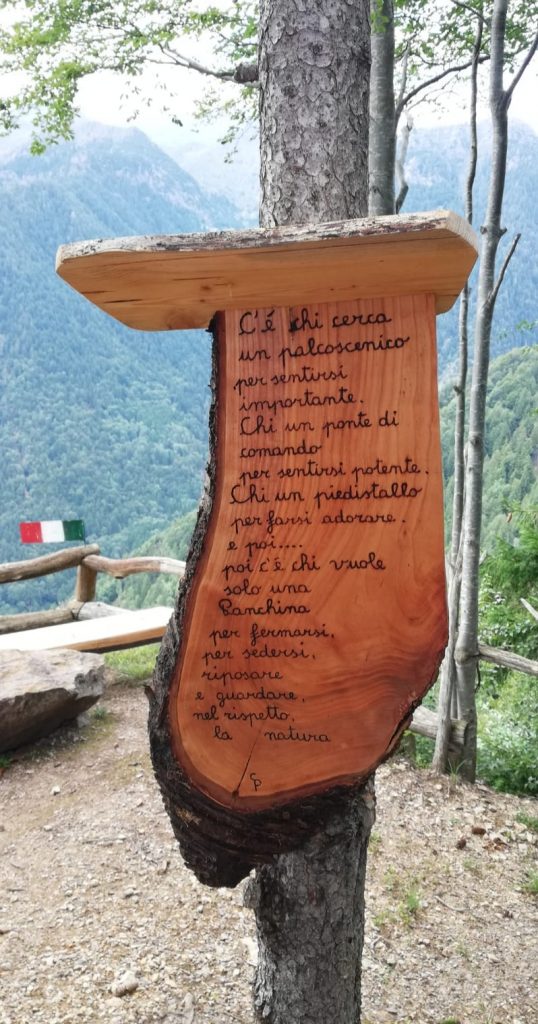 C'é chi cerca
un palcoscenico
per sentirsi
importante.
Chi un ponte di
comando
per sentirsi potente.
Chi un piedistallo
per farsi adorare.
e poi....
poi c'é chi vuole
solo una
Panchina
per fermarsi,
per sedersi,
riposare
e guardare,
nel rispetto,
la natura
CP